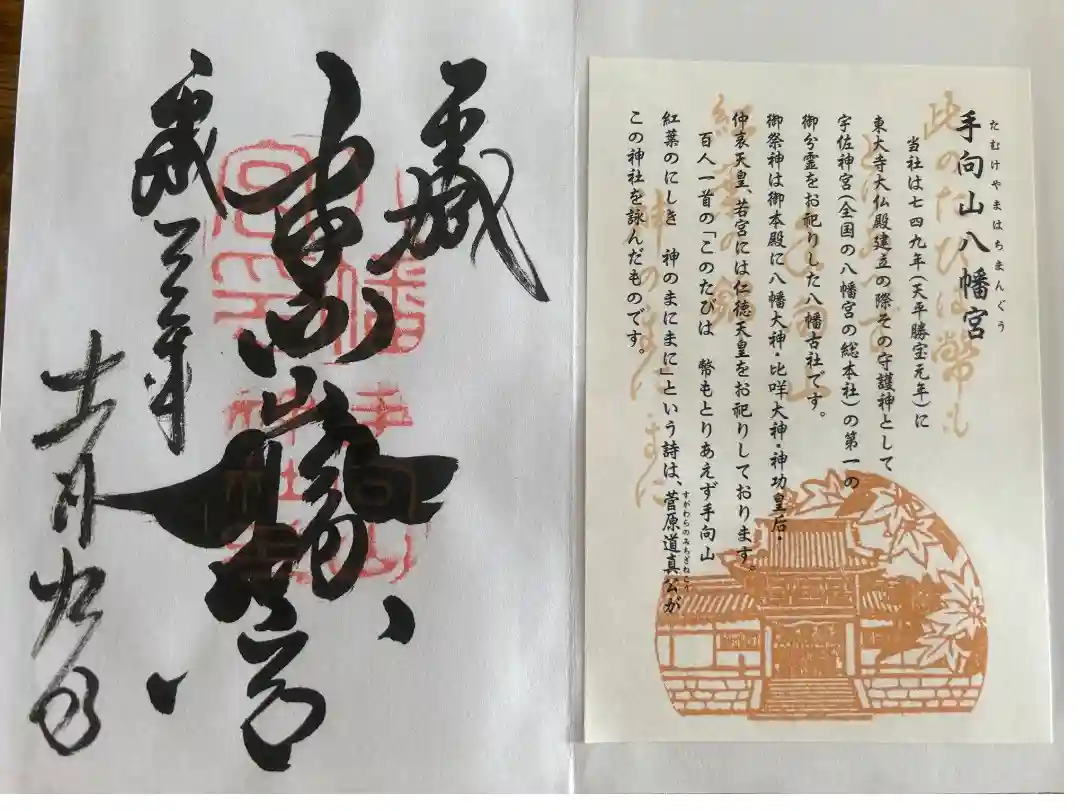 たむけやまはちまんぐう
手向山八幡宮
当社は七四九年（天平勝宝元年）に
東大寺大仏殿建立の際その守護神として
宇佐神宮（全国の八幡宮の総本社）の第一の
御分霊をお祀りした八幡古社です。
御祭神は御本殿に八幡大神・比咩大神・神功皇后・
仲哀天皇、若宮には仁徳天皇をお祀りしております。
百人一首の「このたびは　幣もとりあえず手向山
紅葉のにしき　神のまにまに」という詩は、菅原道真公が
すがわらのみちざねこう
この神社を詠んだものです。
此のたびは幣も
紅葉の錦
神のまにまに
手向山八幡宮